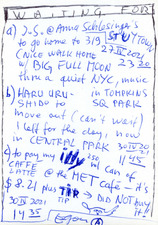 WAITING FOR
a) J.S. @ Anna Schlesinger's
to go home to 319 STUYTOWN
(NICE WALK HOME 27.IV 2021
W/ BIG FULL MOON 23 20
thru a quiet NYC, music
b) HARU URU- in TOMPKINS
SHIDO to SQ PARK
move out (can't wait)
I left for the day, now
in CENTRAL PARK 30 IV 2021
11 45
c) to pay my can of
CAFFE LATTE @ the MET café - it's
$8.21 plus TIP → DID NOT buy it!
30 IV 2021 TIP
14 35
A